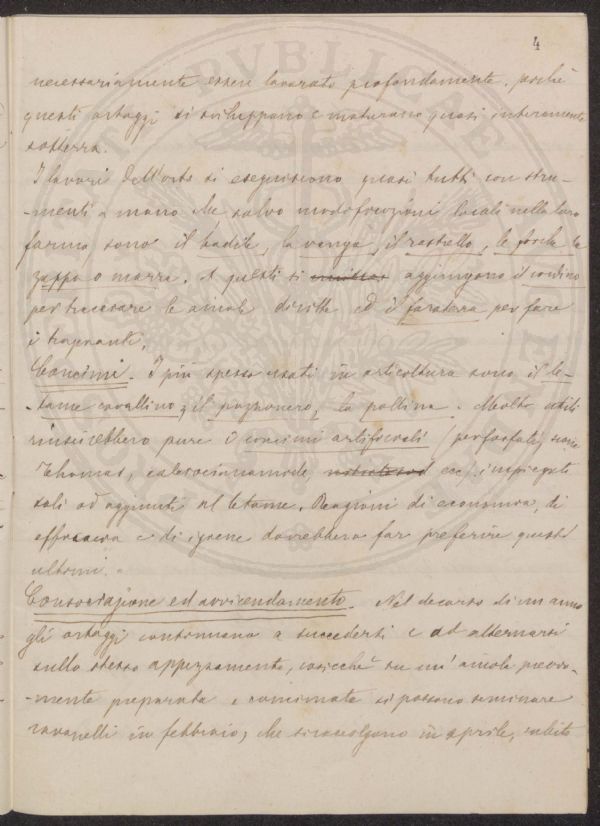 4
necessariamente essere lavorato profondamente, poichè
questi ortaggi si sviluppano e maturano quasi interamente
sotterra.
I lavori dell'orto si eseguiscono quasi tutti con stru-
-menti a mano che salvo modificazioni locali nella loro
forma sono il badile, la vanga, il rastrello, le forche la
zappa o marra. A questi si aggiungono il cordino
per tracciare le aiuole diritte ed il foraterra per fare
i trapianti.
Concimi. I più spesso usati in orticoltura sono il le-
-tame cavallino, il pozzonero, la pollina. Molto utili
riuscirebbero pure i concimi artificiali (perfosfati, scorie
Thomas, calciocianamide, ecc) impiegati
soli od aggiunti al letame. Ragioni di economia, di
efficacia e di igiene dovrebbero far preferire questi
ultimi.
Consociazione ed avvicendamento. Nel decorso di un anno
gli ortaggi continuano a succedersi e ad alternarsi
sullo stesso appezzamento, cosicchè su un'aiuola previa-
-mente preparata e concimata si possono seminare
ravanelli in febbraio, che si raccolgono in aprile, subito